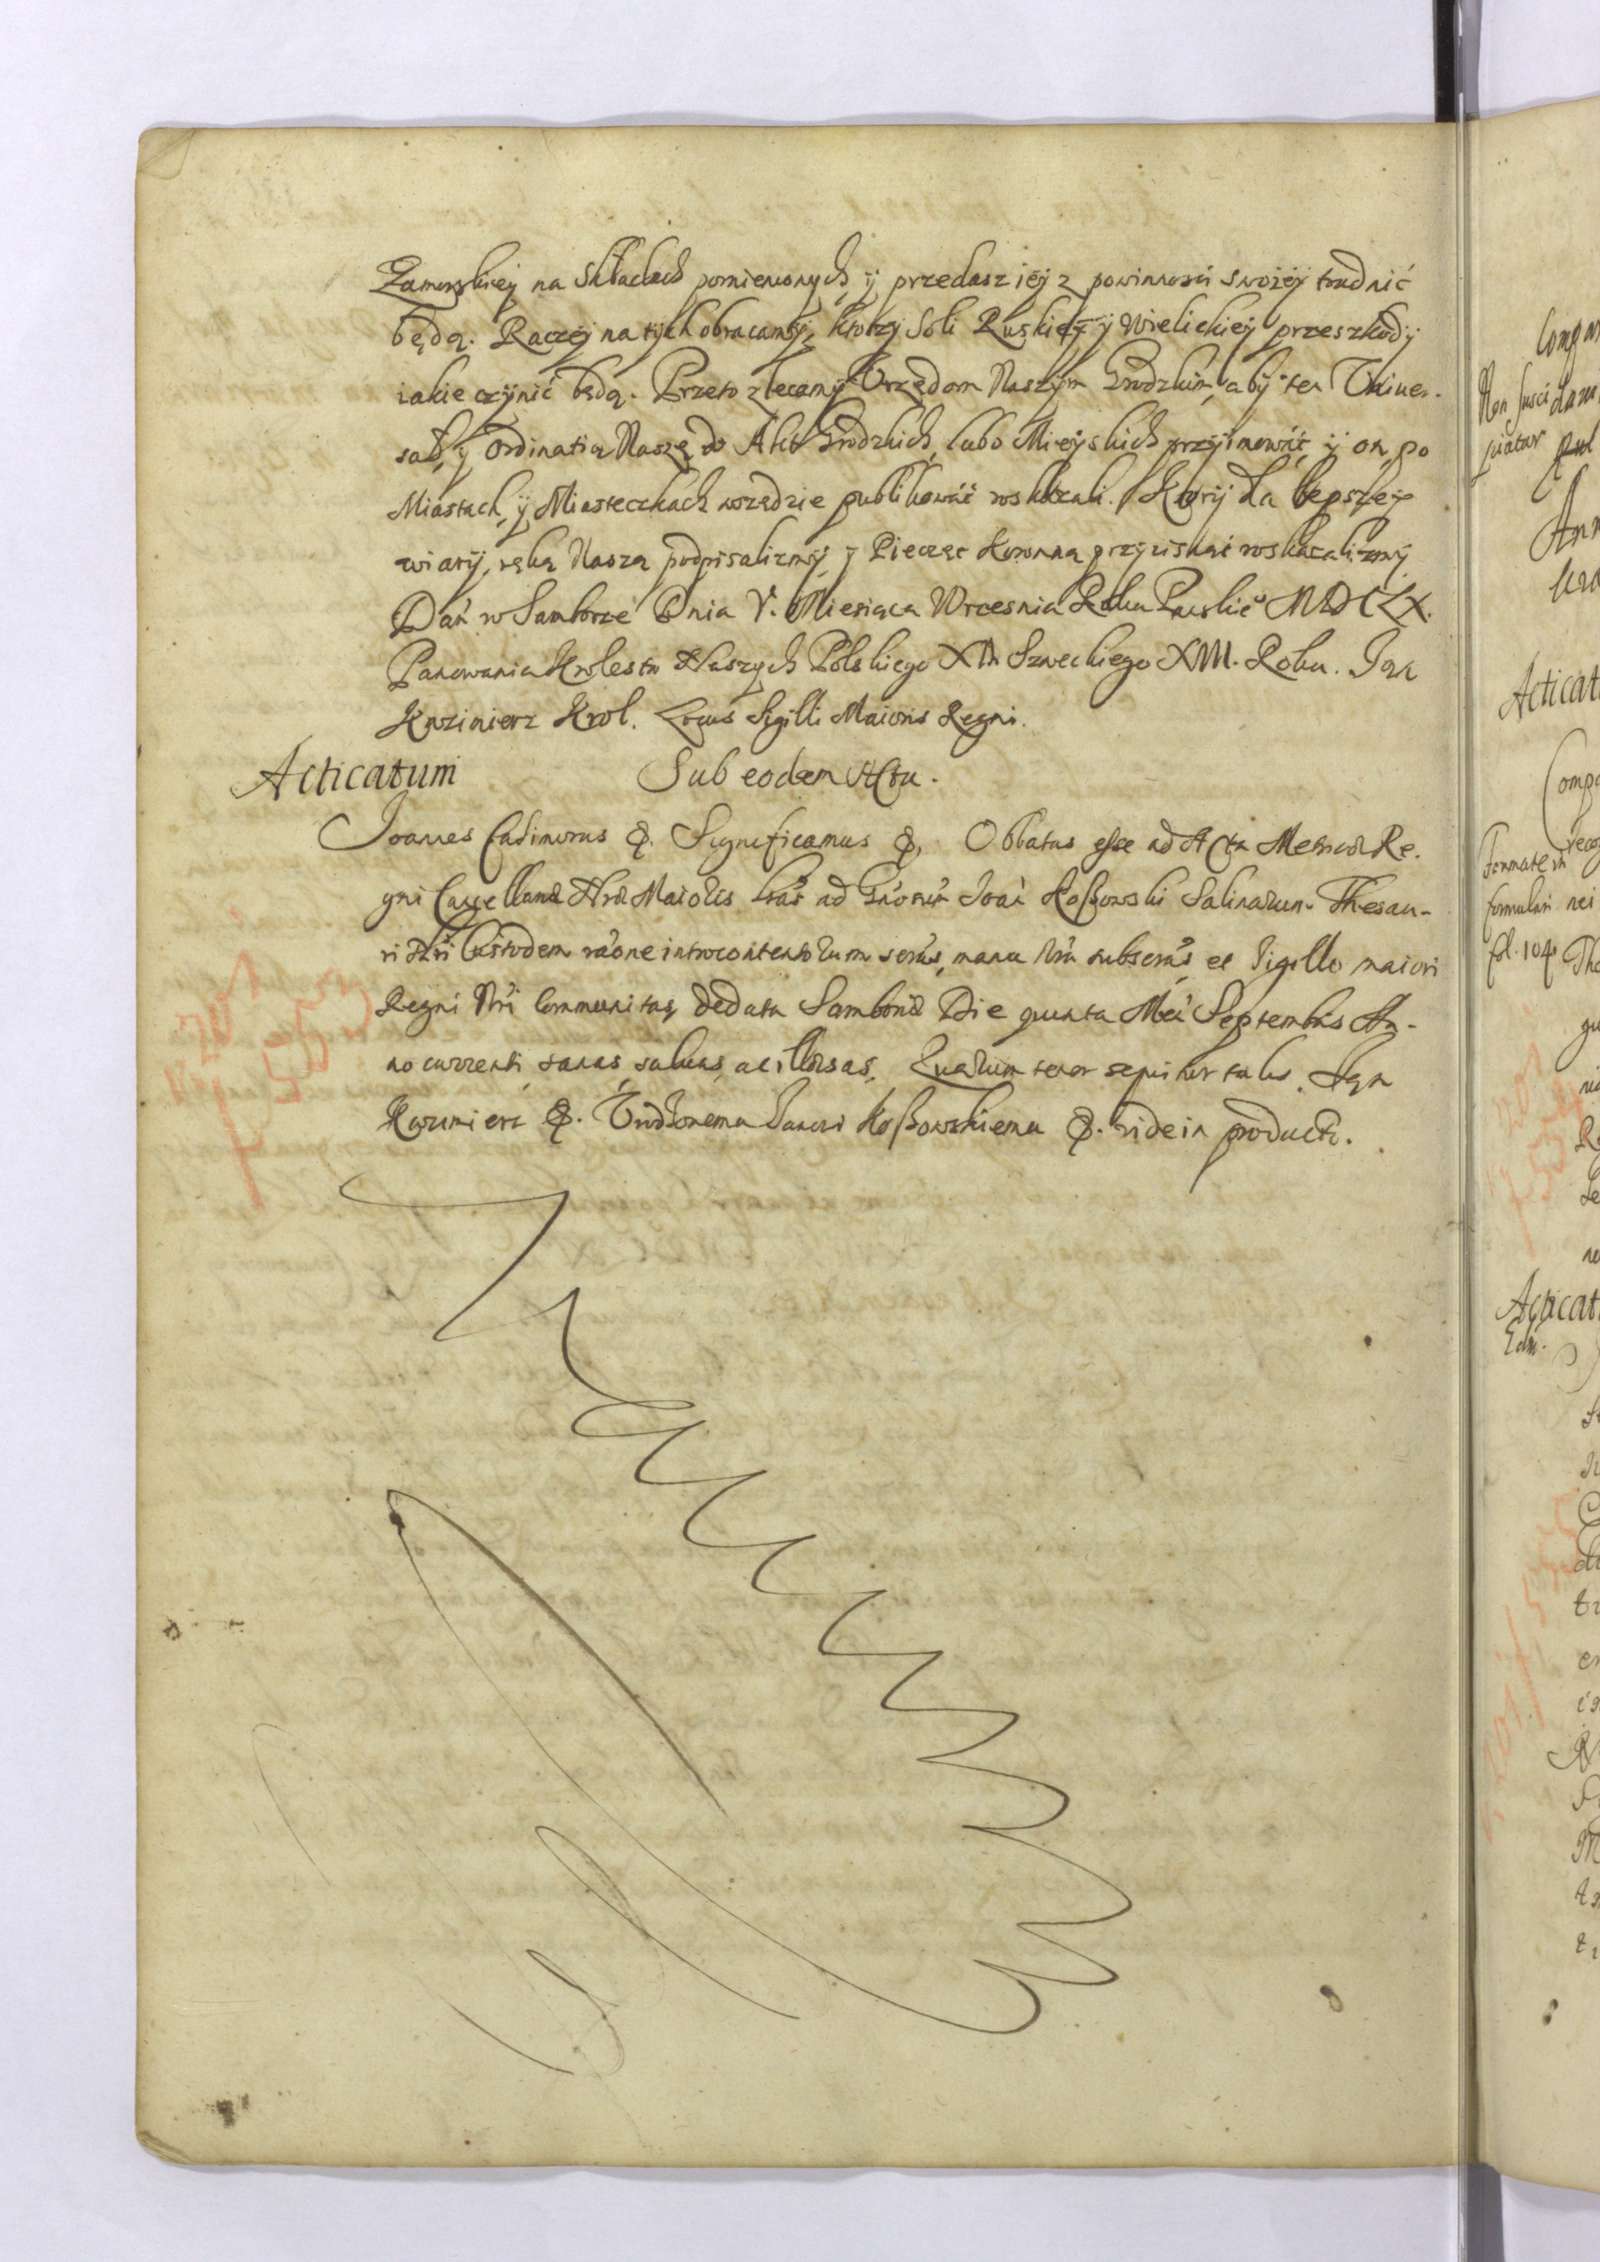 Zamorskiey na Składach pomienionych, y przedasz iey z powinności swoiey trudnić
będą. Raczey na tych obracamy, ktorzy Soli Ruskiey y Wielickiey przeszkody
iakie czynić będą. Przeto zlecamy Vrzędom Naszym Grodzkim, aby ten Uniuer-
sał, y Ordinatią Naszą do Akt Grodzkich, lubo Mieyskich przyimować, y on po
Miastach, y Miasteczkach wszędzie publikować roskazali. Ktory dla lepszey
wiary, ręką Naszą podpisalismy, y Pieczęć Koronną przycisnąć roskazalismy.
Dań w Samborze Dnia V. Miesiąca Wrzesnia Roku Pańskie° MDCLX.
Panowania Krolestw Naszych Polskiego XII Szweckiego XIII. Roku. Jan
Kazimierz Krol. Locus Sigilli Maioris Regni.
Acticatum Sub eodem Actu.
Joannes Casimirus &. Significamus &. Oblatas esse ad Acta Metrices Re-
gni Cancellariæ Nræ Maioris lras ad Gnosum Joan Koßowski Salinarum Thesau-
ri Nri Custodem raone introcontentorum scrus, manu Nra subscras, et Sigillo maiori
Regni Nri Communitas, de data Samboriæ Die quinta Mei Septembris An-
no currenti, sanas saluas, ac illæsas, Quarum tenor sequitur talis. Jan
Kazimierz &. Urodzonemu Janowi Koßowskiemu &. vide in producto.
Acticat
fol. 104
Acticat